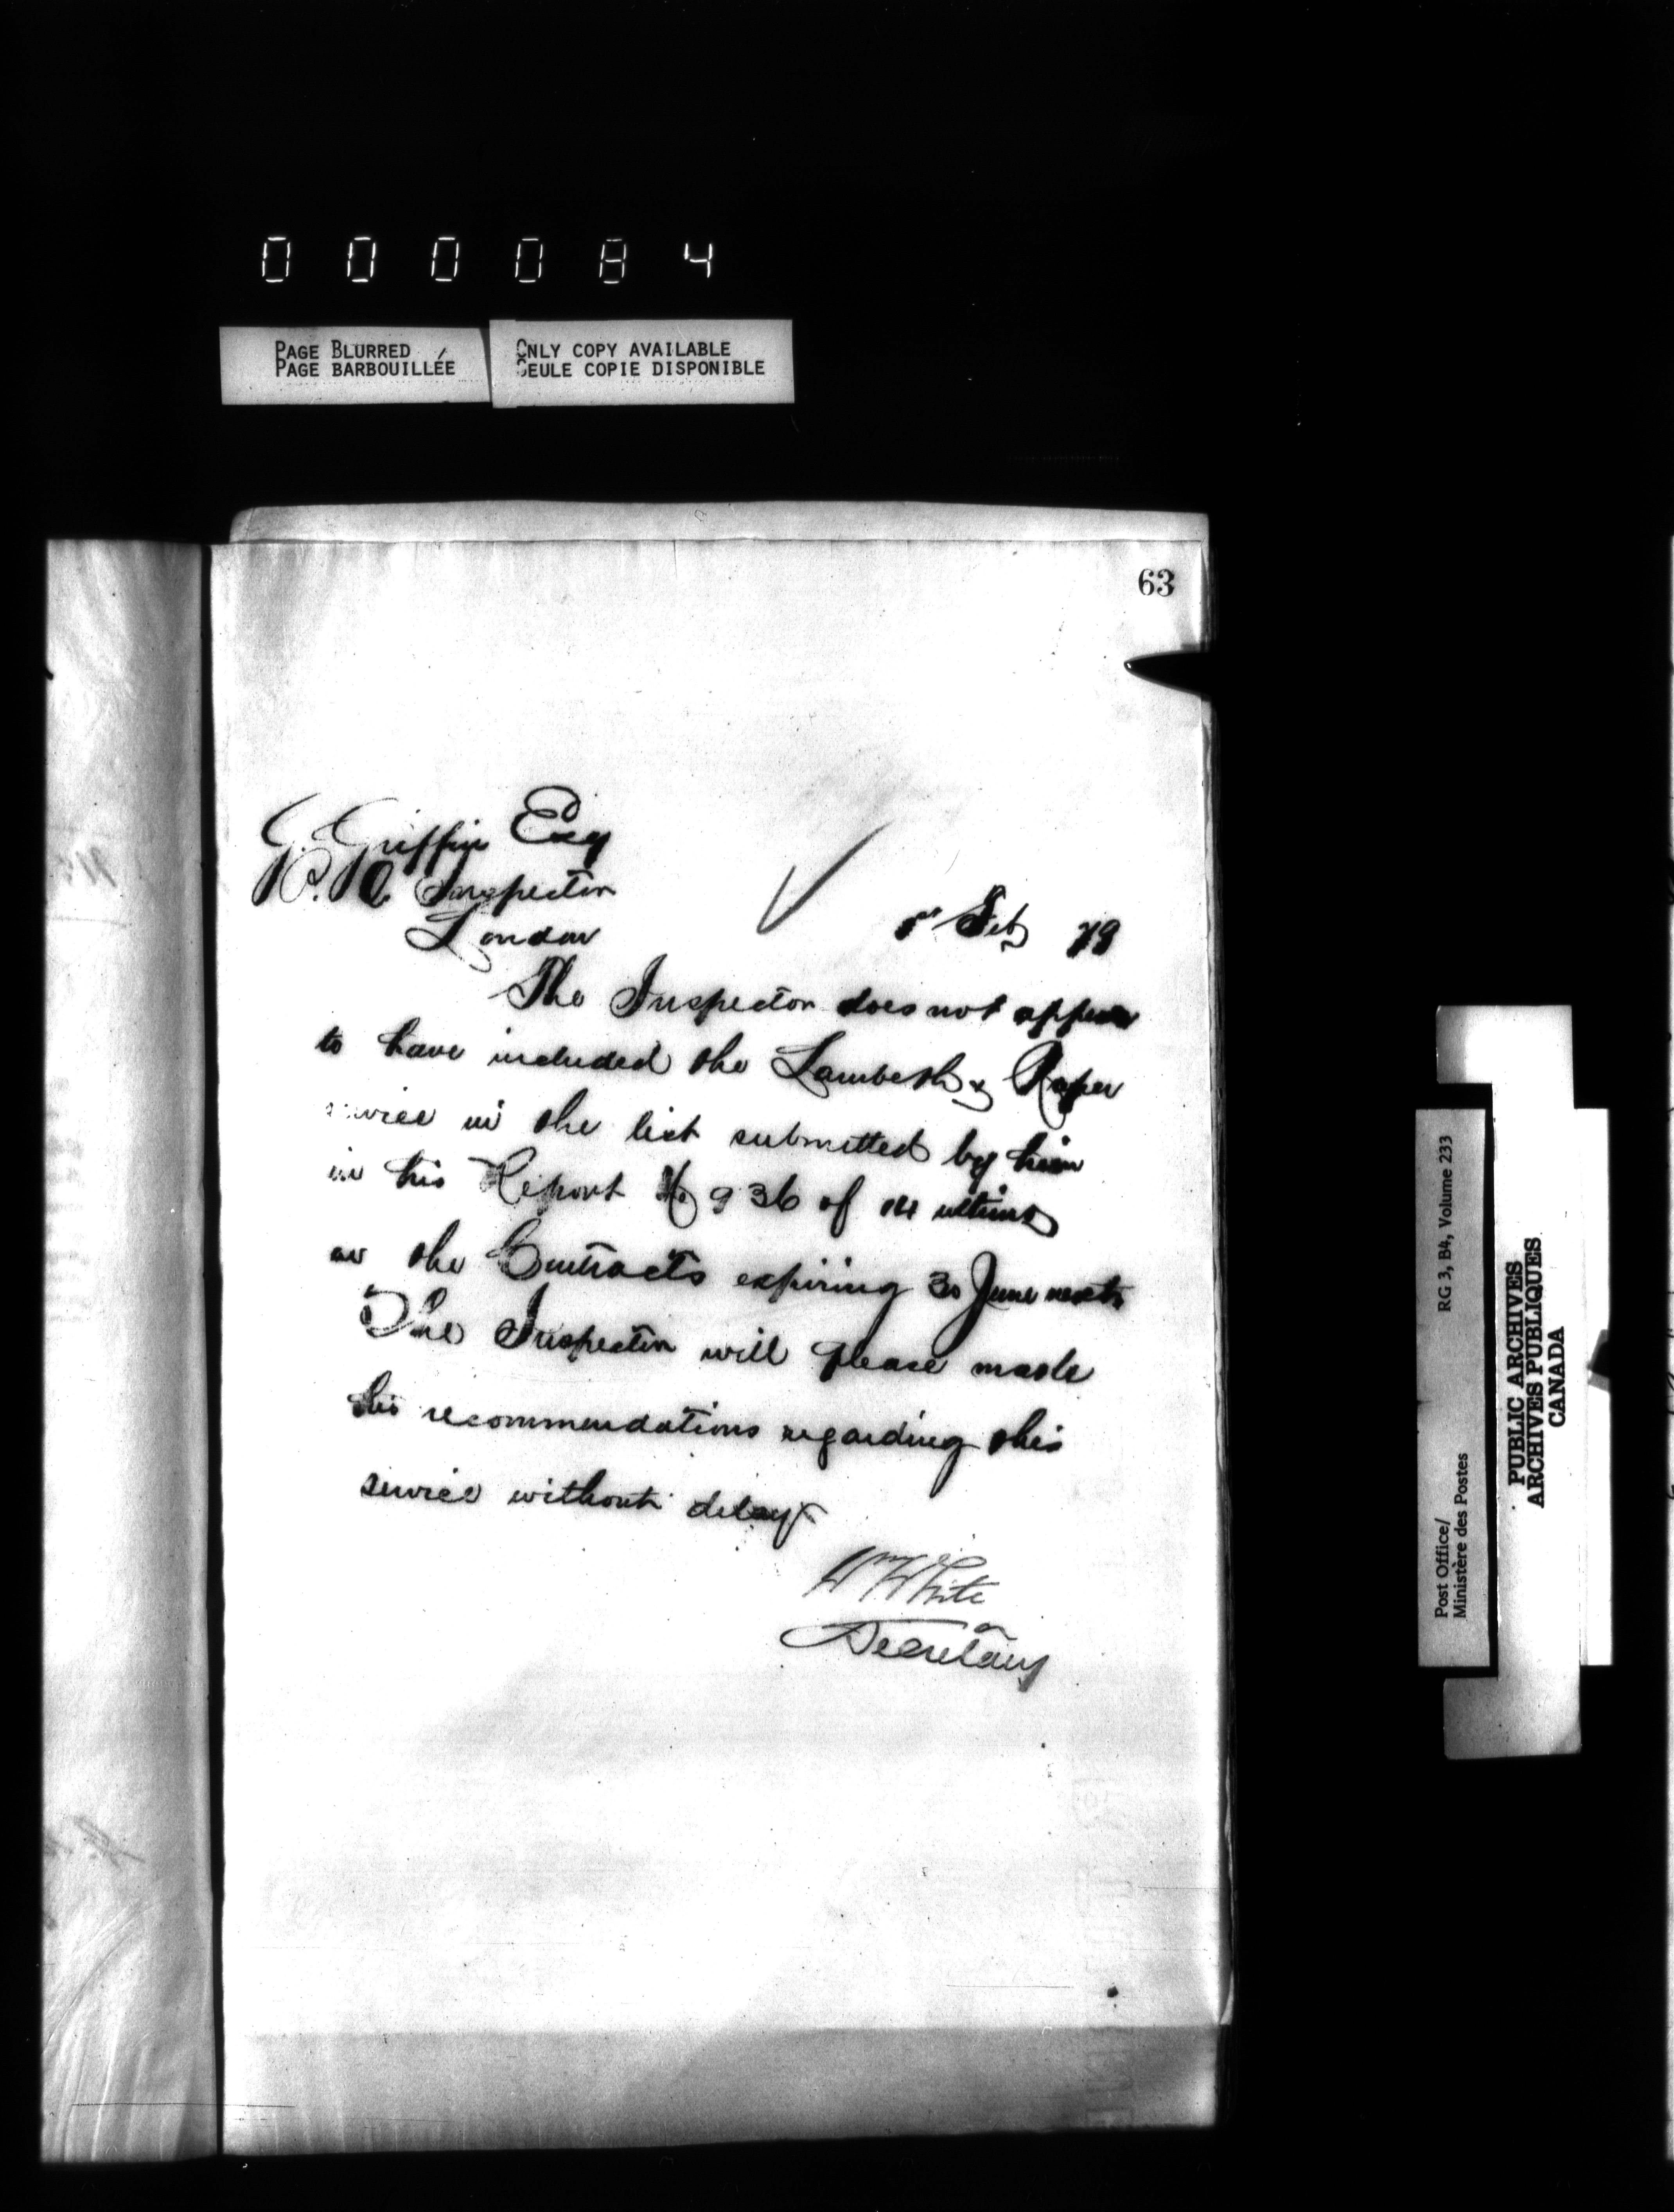 000084
PAGE BLURRED
PAGE BARBOUILLÉE
ONLY COPY AVAILABLE
SEULE COPIE DISPONIBLE
63
G. Griffin Esq
P. O. Inspector
London
1st Feb 79
The Inspector does not appear
to have included the Lambeth & Raper
service in the list submitted by him
in his Report No 936 of ultimo
as the Contracts expiring 30 June next.
The Inspector will please made
his recommendations regarding this
service without delay
Wm White
Secretary
Post Office/
Ministère des Postes
RG 3, B4, Volume 233
PUBLIC ARCHIVES
ARCHIVES PUBLIQUES
CANADA